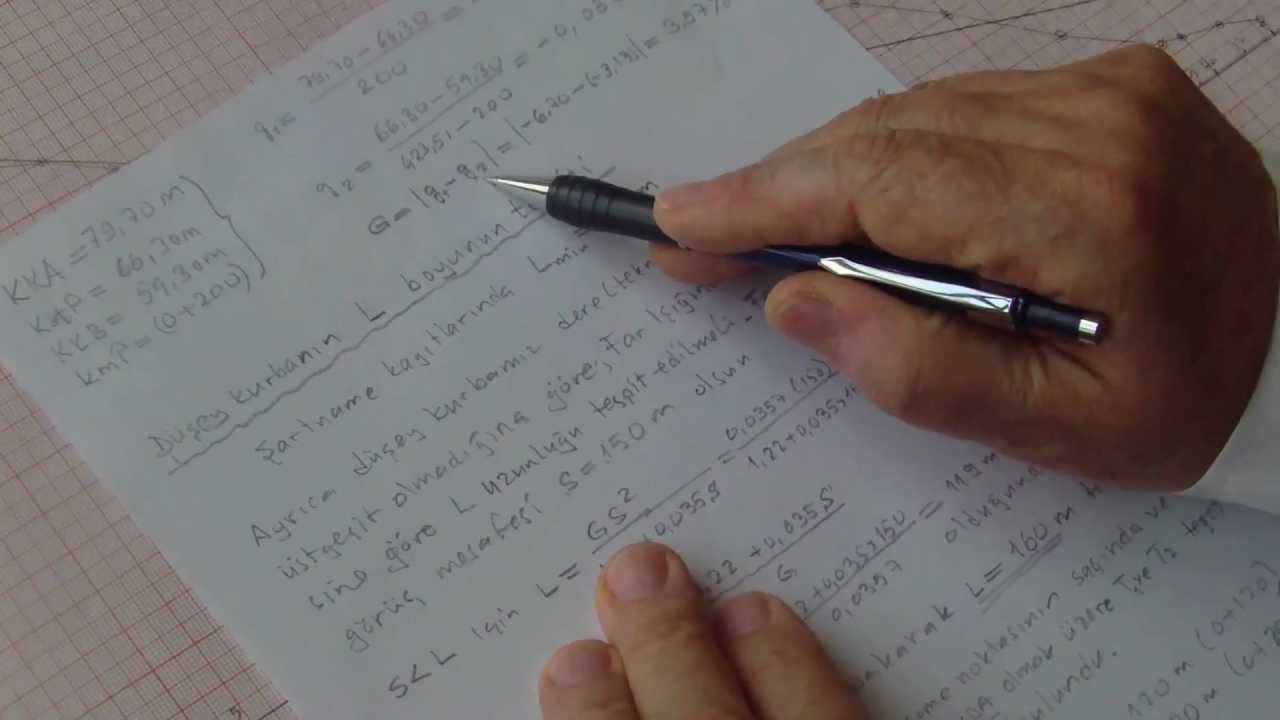 q₁ = 79,70 - 66,30 =
200
q₂ = 66.30 - 59.30 = -0,03
423,51 - 200
G = |q₁ - q₂| = |-6.70 - (-3,13)| = 3.57%
KKA = 79,70 m
KKP = 66,30 m
KKB = 59,30 m
kmP = (0+200)
Düşey kurbanın L boyunun
Şartname kağıtlarında Lmin = m
Ayrıca düşey kurbamız
üstgeçit olmadığına göre, Far Işığı
sine göre L uzunluğu tespit edilmeli
görüş mesafesi S = 150 m olsun
S < L için L = GS² = 0,0357 (150)
+ 0,035S 1,22 + 0,035x1
22 + 0,035S
G
2 + 0,035x150 = 119 m
0,0357
akarak L = 160 m
noktasının sağında ve
olmak üzere T₁ ve T₂
ulundu.
120 m (0+120)